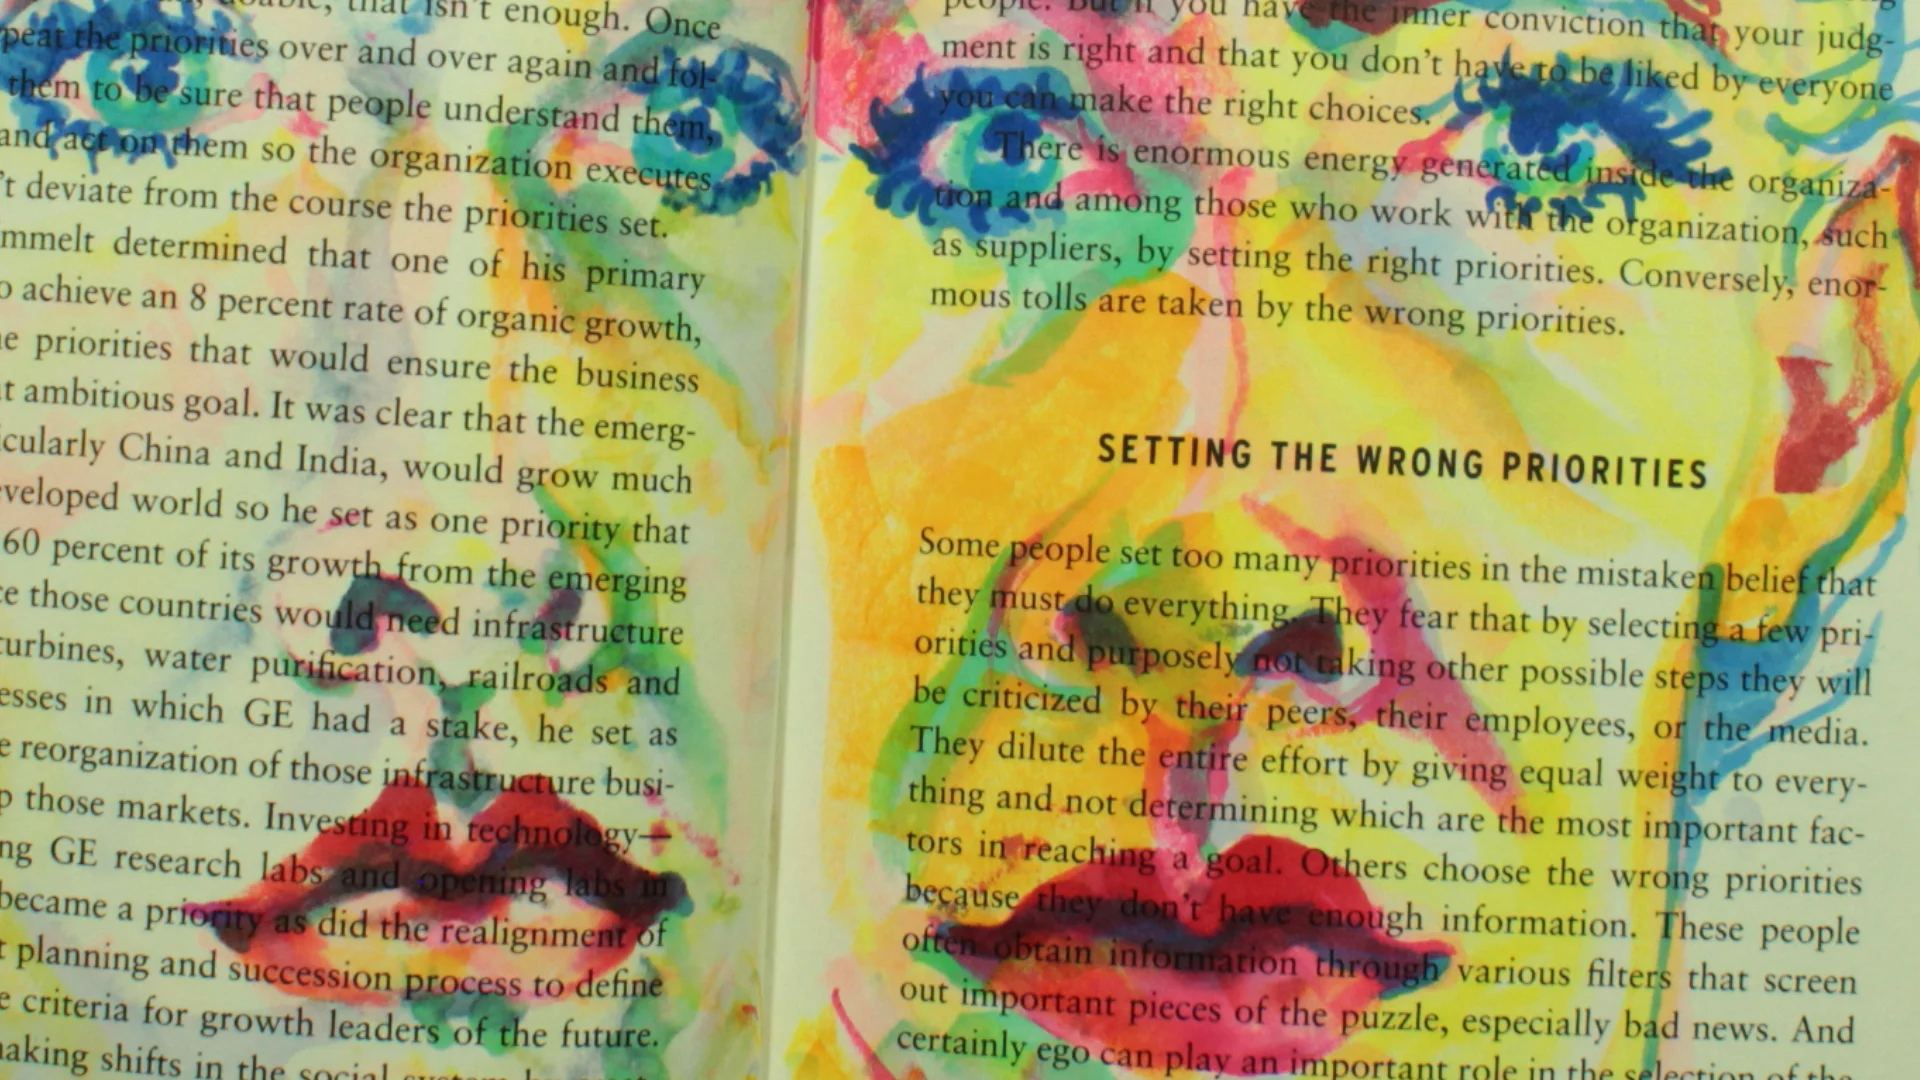 that isn't enough. Once
peat the priorities over and over again and fol-
them to be sure that people understand them,
and act on them so the organization executes
't deviate from the course the priorities set.
mmelt determined that one of his primary
o achieve an 8 percent rate of organic growth,
e priorities that would ensure the business
t ambitious goal. It was clear that the emerg-
icularly China and India, would grow much
veloped world so he set as one priority that
60 percent of its growth from the emerging
ce those countries would need infrastructure
turbines, water purification, railroads and
esses in which GE had a stake, he set as
e reorganization of those infrastructure busi-
p those markets. Investing in technology—
ng GE research labs and opening labs in
became a priority as did the realignment of
t planning and succession process to define
e criteria for growth leaders of the future.
naking shifts in the social system
people. But if you have the inner conviction that your judg-
ment is right and that you don't have to be liked by everyone
you can make the right choices.
There is enormous energy generated inside the organiza-
tion and among those who work with the organization, such
as suppliers, by setting the right priorities. Conversely, enor-
mous tolls are taken by the wrong priorities.
SETTING THE WRONG PRIORITIES
Some people set too many priorities in the mistaken belief that
they must do everything. They fear that by selecting a few pri-
orities and purposely not taking other possible steps they will
be criticized by their peers, their employees, or the media.
They dilute the entire effort by giving equal weight to every-
thing and not determining which are the most important fac-
tors in reaching a goal. Others choose the wrong priorities
because they don't have enough information. These people
often obtain information through various filters that screen
out important pieces of the puzzle, especially bad news. And
certainly ego can play an important role in the selection of the